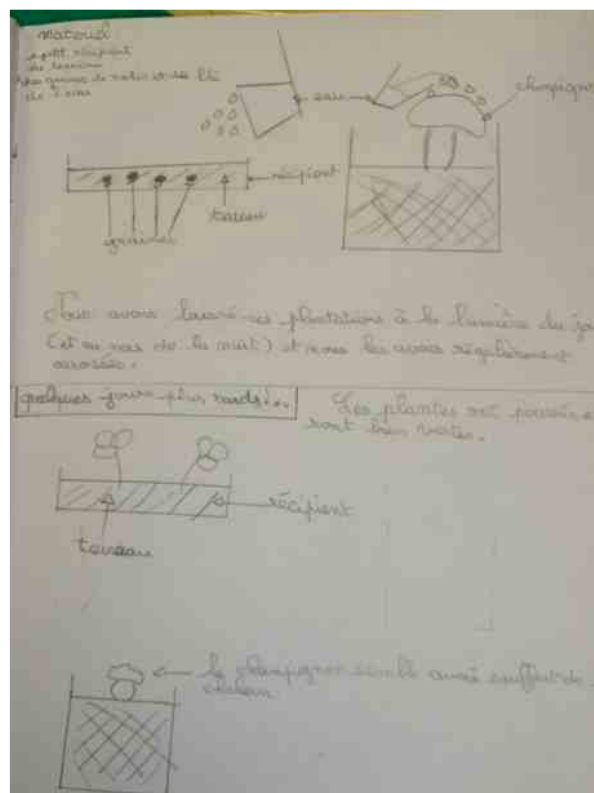 matériel
petit récipient
du terreau
des graines de radis et de blé
de l'eau
eau
champignon
récipient
graines
terreau
Nous avons laissé ces plantations à la lumière du jour
(et au noir de la nuit) et nous les avons régulièrement
arrosées.
quelques jours plus tards...
Les plantes ont poussé
sont bien vertes.
récipient
terreau
le champignon semble avoir souffert de
chaleur